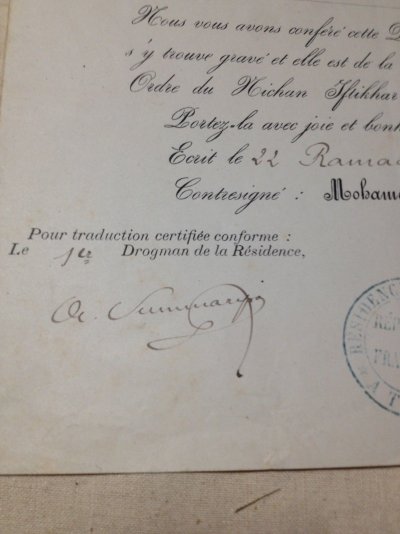 Nous vous avons conféré cette D
s'y trouve gravé et elle est de la
Ordre du Nichan Iftikhar
Portez-la avec joie et bonh
Ecrit le 22 Ramad
Contresigné : Mohame
Pour traduction certifiée conforme :
Le 1er Drogman de la Résidence,
RÉSIDENC
RÉP
FRA
A T